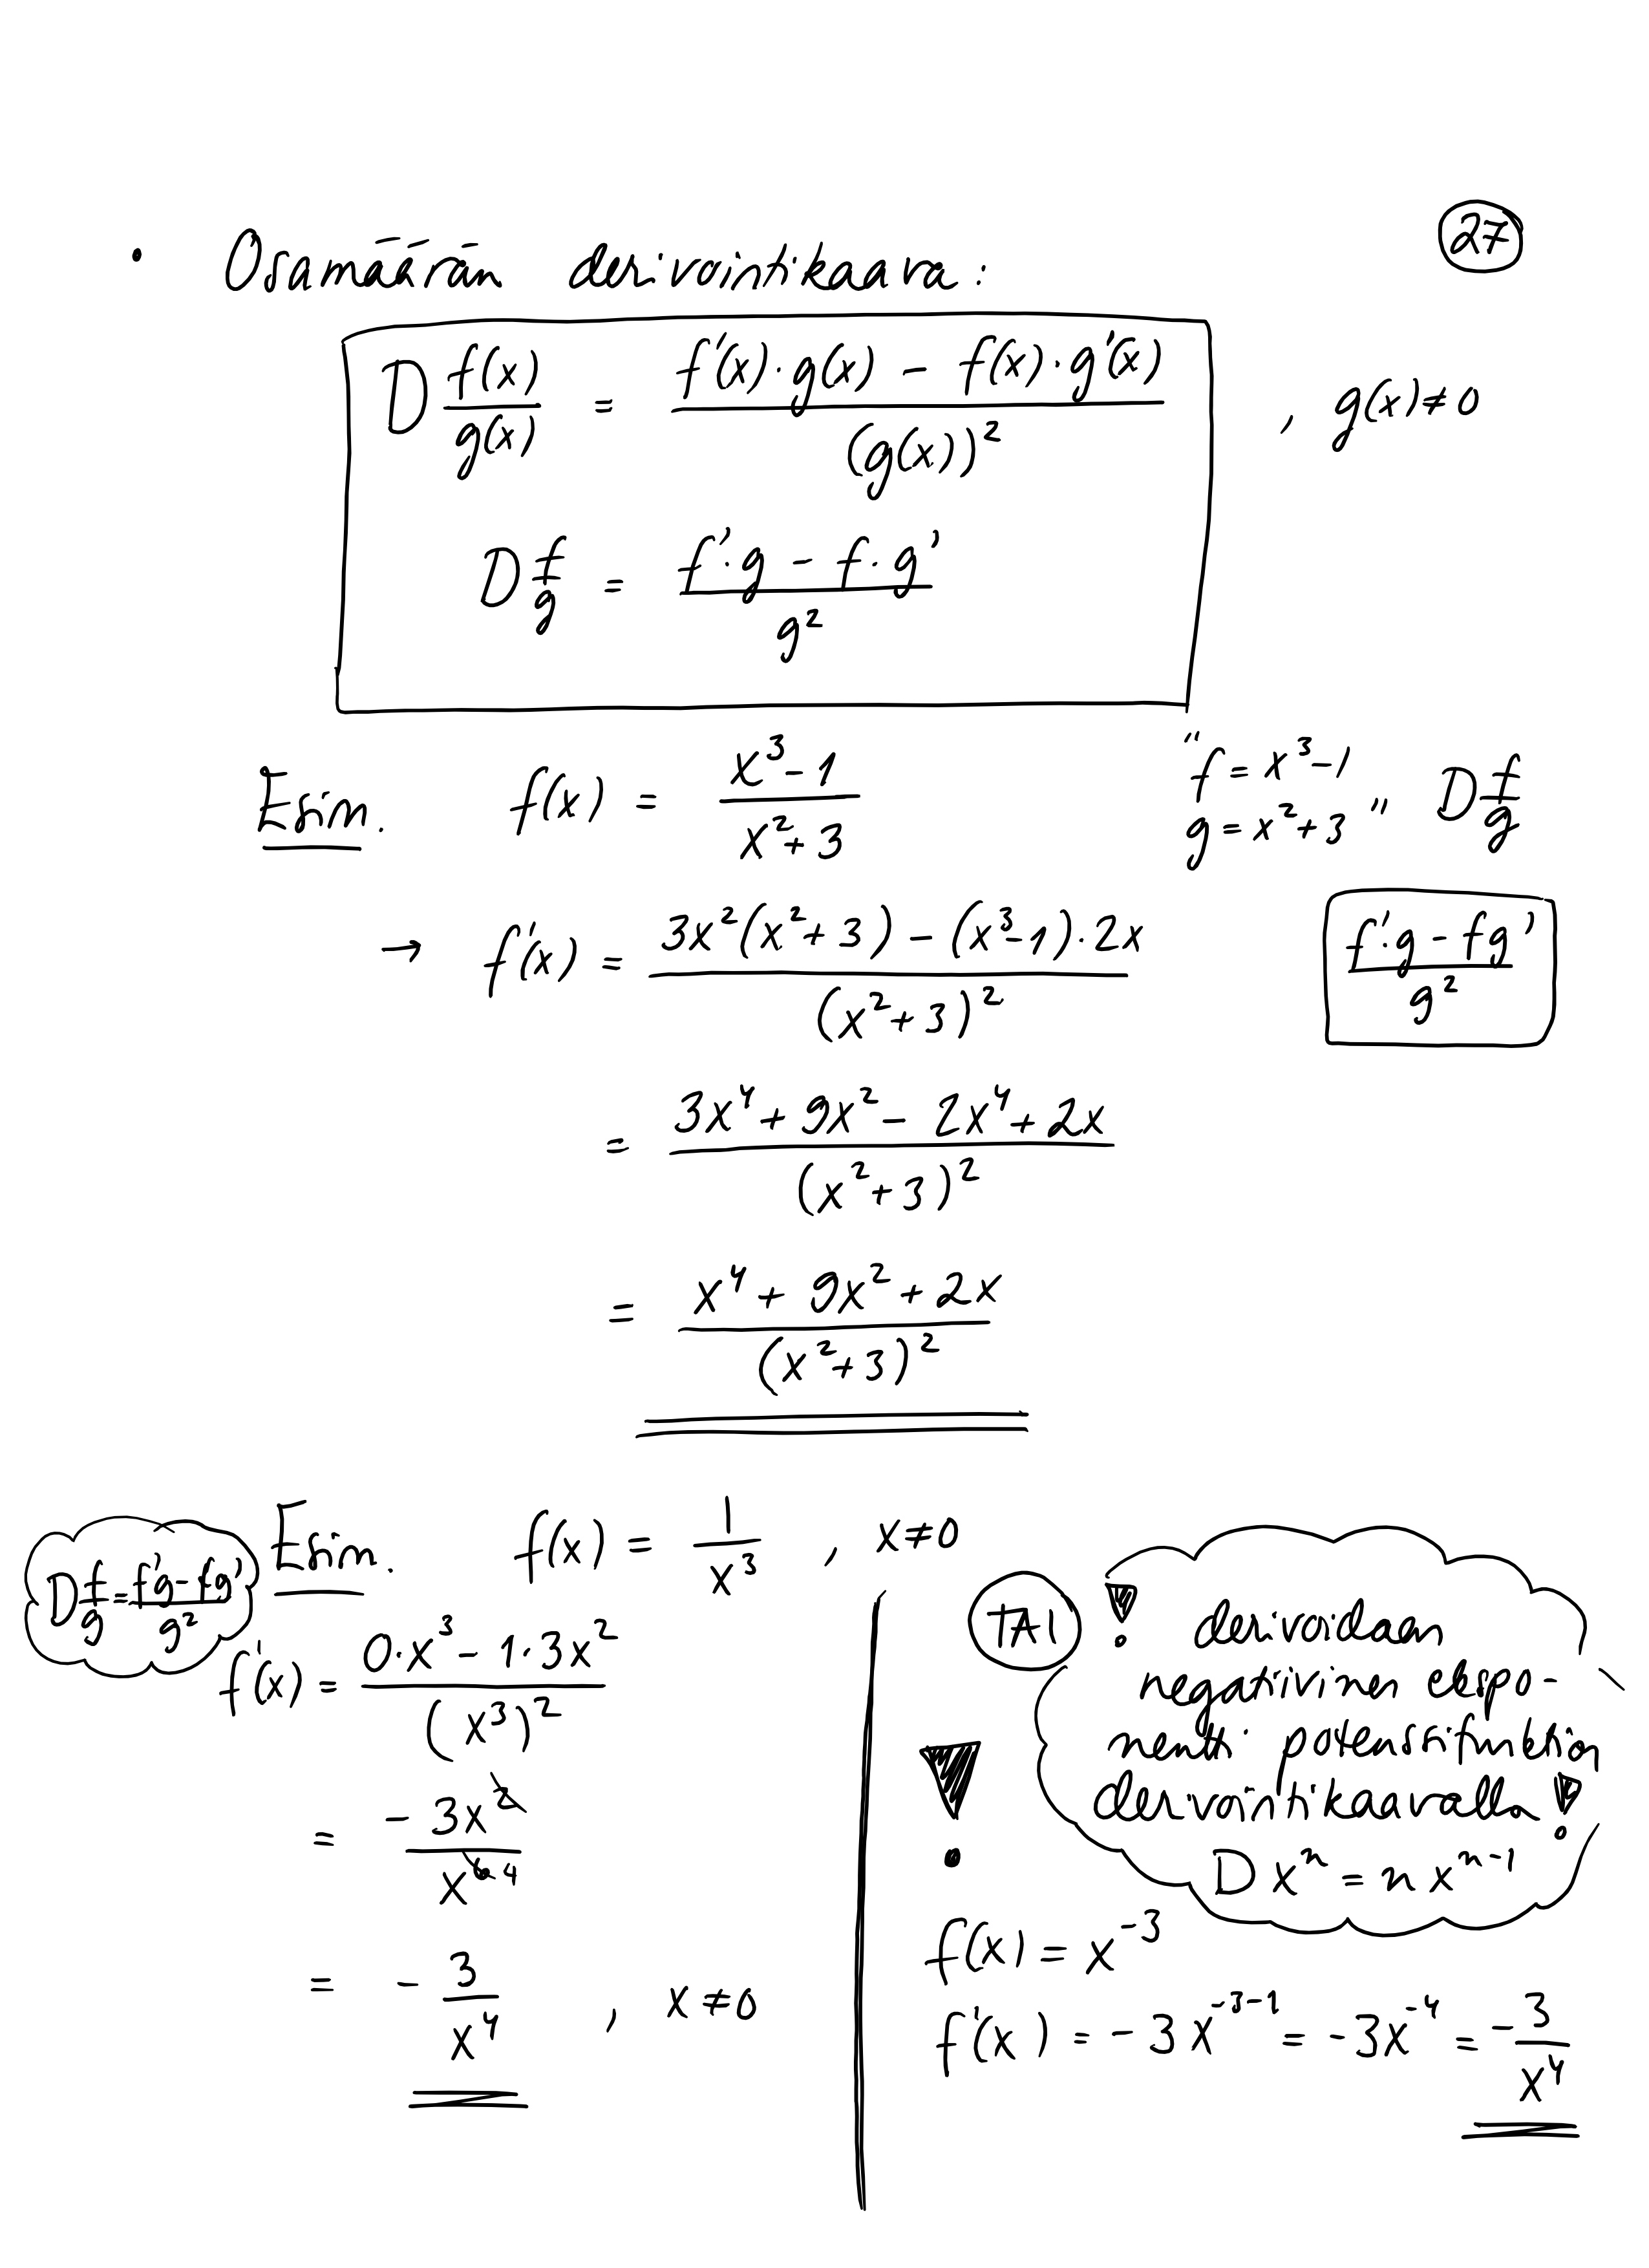 27
• Osamäärän derivointikaava:
D f(x)/g(x) = (f'(x)·g(x) - f(x)·g'(x))/(g(x))² , g(x)≠0
D f/g = (f'·g - f·g')/g²
Esim. f(x) = (x³-1)/(x²+3) "f = x³-1 g = x²+3" D f/g
→ f'(x) = (3x²(x²+3) - (x³-1)·2x)/(x²+3)² (f'·g - fg')/g²
= (3x⁴ + 9x² - 2x⁴ + 2x)/(x²+3)²
= (x⁴ + 9x² + 2x)/(x²+3)²
Esim. f(x) = 1/x³ , x≠0
D f/g = (f'g - fg')/g²
f'(x) = (0·x³ - 1·3x²)/(x³)²
= -3x²/x⁶ ⁴
= - 3/x⁴ , x≠0
TAI
! derivoidaan
negatiivinen ekspo-
nentti potenssifunktion
derivointikaavalla !
D xⁿ = n xⁿ⁻¹
!
f(x) = x⁻³
f'(x) = -3x⁻³⁻¹ = -3x⁻⁴ = - 3/x⁴